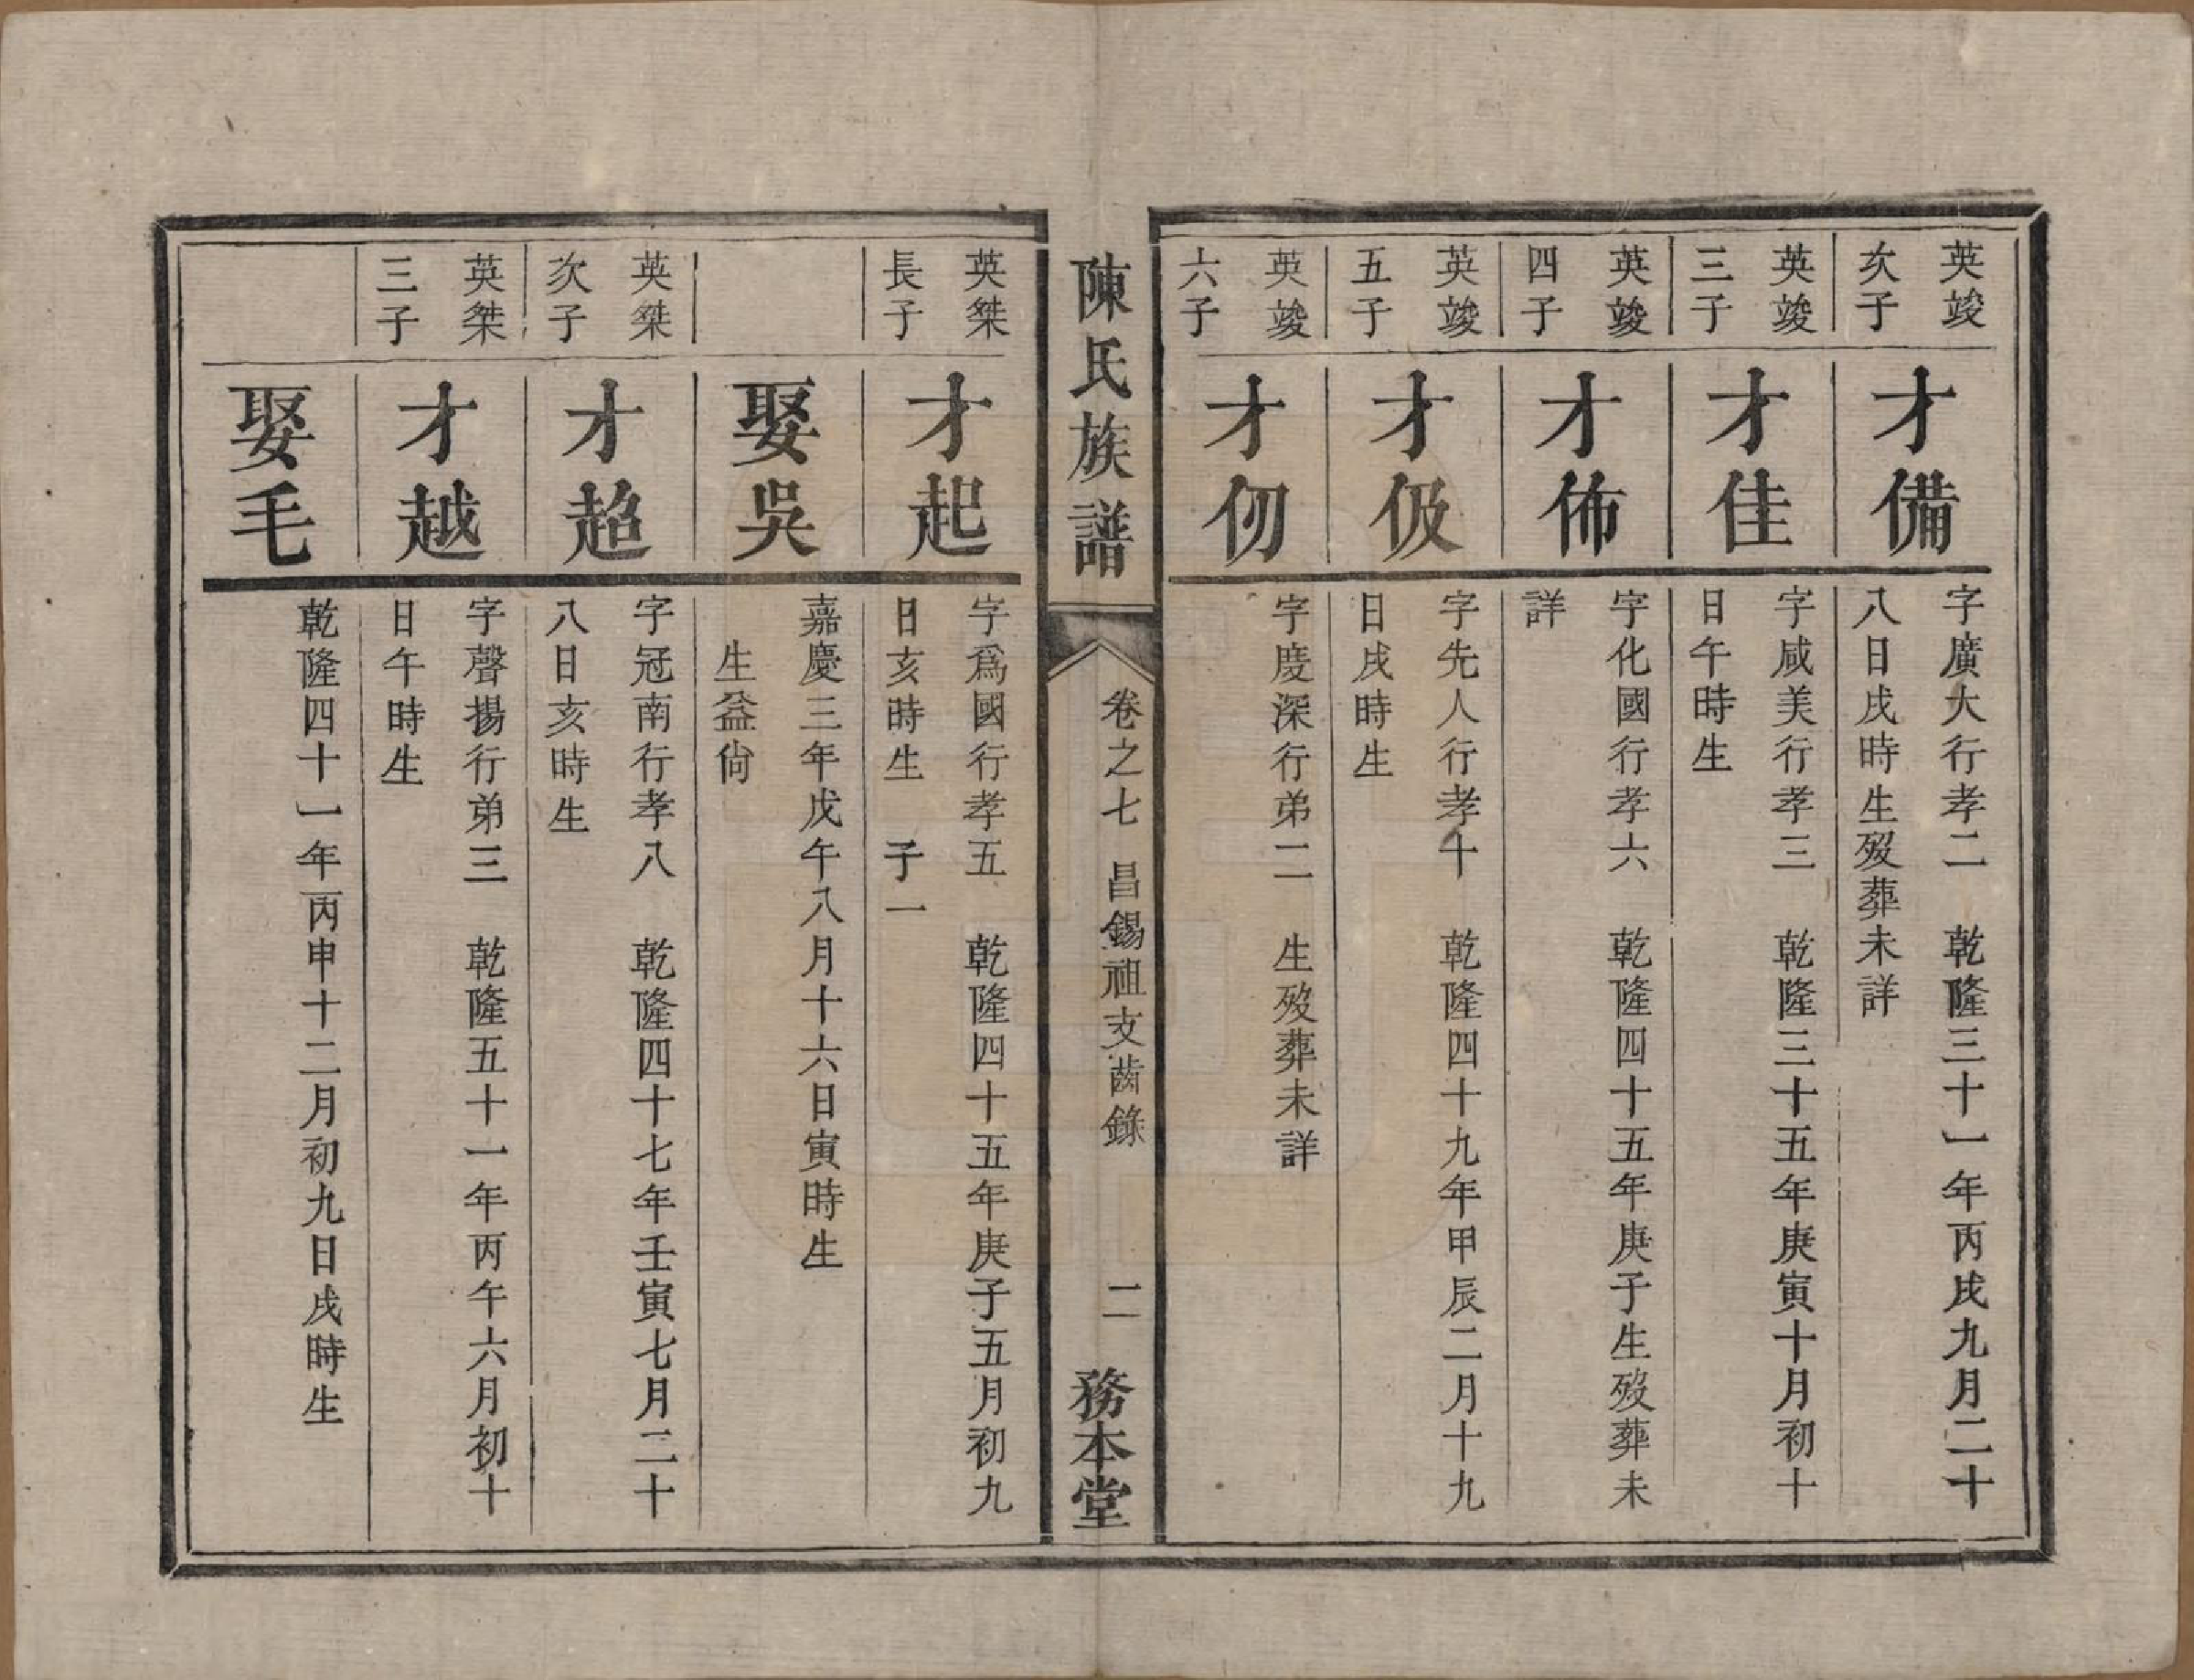 英竣
次子
才備
字廣大行孝二　乾隆三十一年丙戌九月二十
八日戌時生歿葬未詳
英竣
三子
才佳
字咸美行孝三　乾隆三十五年庚寅十月初十
日午時生
英竣
四子
才佈
字化國行孝六　乾隆四十五年庚子生歿葬未
詳
英竣
五子
才伋
字先人行孝十　乾隆四十九年甲辰二月十九
日戌時生
英竣
六子
才仞
字度深行弟二　生歿葬未詳
陳氏族譜
卷之七　昌錫祖支齒錄
二
務本堂
英桀
長子
才起
字爲國行孝五　乾隆四十五年庚子五月初九
日亥時生　子一
娶吳
嘉慶三年戊午八月十六日寅時生
生益尙
英桀
次子
才超
字冠南行孝八　乾隆四十七年壬寅七月二十
八日亥時生
英桀
三子
才越
字聲揚行弟三　乾隆五十一年丙午六月初十
日午時生
娶毛
乾隆四十一年丙申十二月初九日戌時生